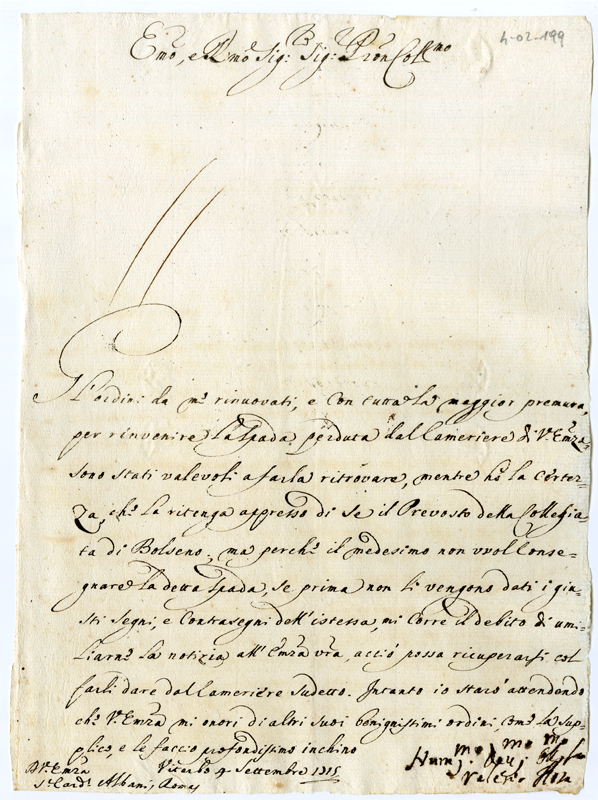 4-02-199
Emo, e Rmo Sig: Sig: Pron Collmo
Gl'ordini da me rinuovati, e con tutta la maggior premura,
per rinvenire la spada perduta dal Cameriere di V. Emza,
sono stati valevoli a farla ritrovare, mentre hò la certez-
za, che la ritenga appresso di se il Prevosto della Collegia-
ta di Bolseno, ma perche il medesimo non vvol conse-
gnare la detta spada, se prima non li vengono dati i giu-
sti segni, e contrasegni dell'istessa, mi corre il debito di umi-
liarne la notizia all'Emza vra, acciò possa ricuperarsi col
farli dare dal Cameriere sudetto. Intanto io starò attendendo
che V. Emza mi onori di altri suoi benignissimi ordini, come la sup-
plico, e le faccio profondissimo inchino
Viterbo 4 Settembre 1715
Hummo Devmo Oblmo
Valerio Rota
D V. Emza
Sr Card. Albani, Roma